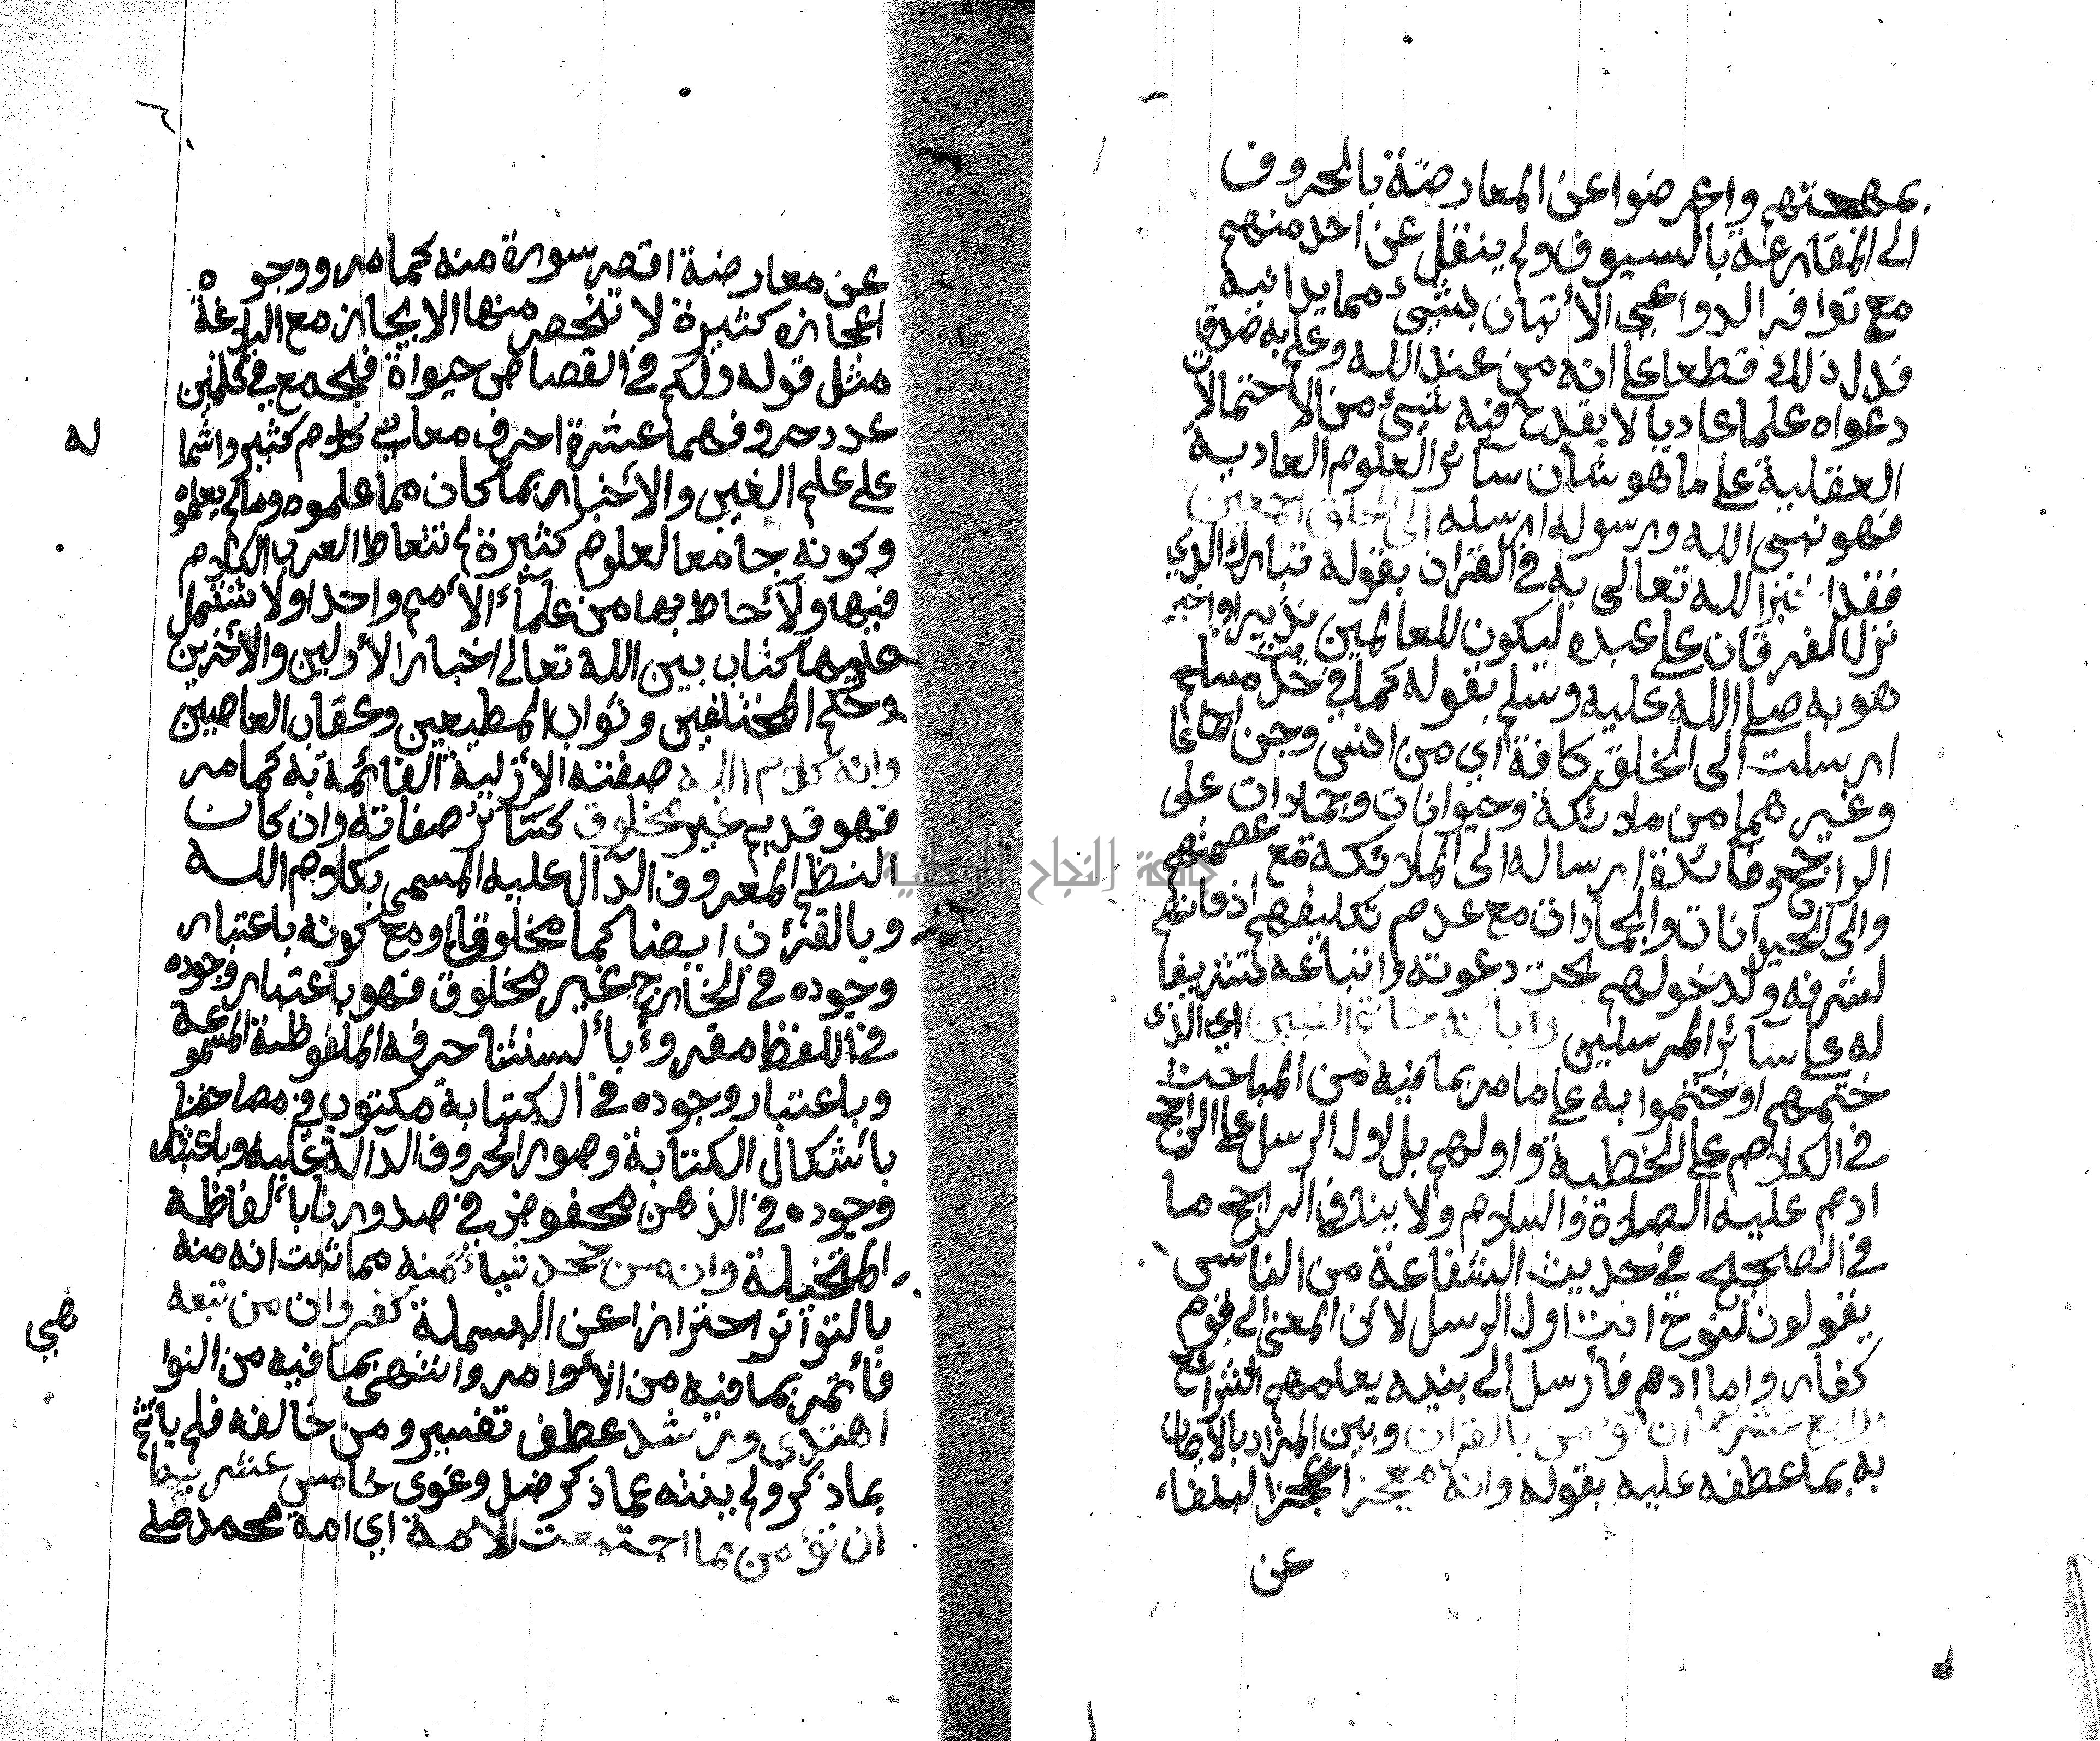 بمهجتهم واعرضوا عن المعارضة بالحروف
الى المقارعة بالسيوف ولم ينقل عن احد منهم
مع توافر الدواعي الأتيان بشيئ مما يدانيه
فدل ذلك قطعا على انه من عند الله وعلم به صدق
دعواه علما عاديا لا يقدح فيه شيئ من الاحتمالات
العقلية على ما هو شان سآئر العلوم العادية
فهو نبى الله ورسوله ارسله الى الخلق اجمعين
فقد اخبر الله تعالى به في القران بقوله تبارك الذي
نزل الفرقان على عبده ليكون للعالمين نذيرا واخبر
هو به صلى الله عليه وسلم بقوله كما في حديث مسلم
ارسلت الى الخلق كافة اي من انس وجن اجماعا
وغيرهما من ملائكة وحيوانات وجمادات على
الراجح وفائدة ارساله الى الملائكة مع عصمتهم
والى الحيوانات والجمادات مع عدم تكليفهم اذعانهم
لشرفه ودخولهم تحت دعوته واتباعه تشريفا
له على سآئر المرسلين وابانه خاتم النبين اي الذي
ختمهم او ختموا به على ما مر بما فيه من المباحث
في الكلام على الخطبة واولهم بل اول الرسل على الراجح
ادم عليه الصلاة والسلام ولا ينافى الراجح ما
في الصحيح في حديث الشفاعة من الناس
يقولون لنوح انت اول الرسل لائن المعنى الى قوم
كفار واما ادم فأرسل الى بنيه يعلمهم الشرائع
ورابع عشرها ان تؤمن بالقران وبين المراد بالايمان
به بما عطفه عليه بقوله وانه معجز اعجز البلغاء
عن
عن معارضة اقصر سورة منه كما مر ووجوه
اعجازه كثيرة لا تنحصر منها الايجاز مع البلاغة
مثل قوله ولكم في القصاص حيواة فجمع في كلمتين
عدد حروفهما عشرة احرف معاني كلام كثير واشتما
له
على علم الغيب والأخبار بما كان مما علموه وما لم يعلموه
وكونه جامعا لعلوم كثيرة لم تتعاط العرب الكلام
فيها ولآ أحاط بها من علمآء الأمم واحد ولا شتمل
عليها كتاب بين الله تعالى اخبار الأولين والأخرين
وحكم المختلفين وثواب المطيعين وعقاب العاصين
وانه كلام الله صفته الأزلية القائمة به كما مر
فهو قديم غير مخلوق كسآئر صفاته وان كان
النظم المعروف الدآل عليه المسمى بكلام الله
وبالقرئن ايضا كما مخلوقا ومع كونه باعتبار
وجوده في الخارج غير مخلوق فهو باعتبار وجوده
في اللفظ مقروء بألسنتنا حرفه الملفوظة المسموعة
وباعتبار وجوده في الكتابة مكتوب في مصاحفنا
بأشكال الكتابة وصور الحروف الدآلة عليه وباعتبار
وجوده في الذهن محفوض في صدورنا بألفاظه
المتخيلة وان من جحد شيأ منه مما ثبت انه منه
بالتواتر احترازا عن البسملة كفر وان من تبعه
فأتمر بما فيه من الأوامر وانتهى بما فيه من النوا
هي
اهتدى ورشد عطف تفسير ومن خالفه فلم يأتم
بما ذكر ولم ينته عما ذكر ضل وغوى خامس عشر
ان تؤمن بما اجتمعت الأمة اي امة محمد صلى
جامعة النجاح الوطنية